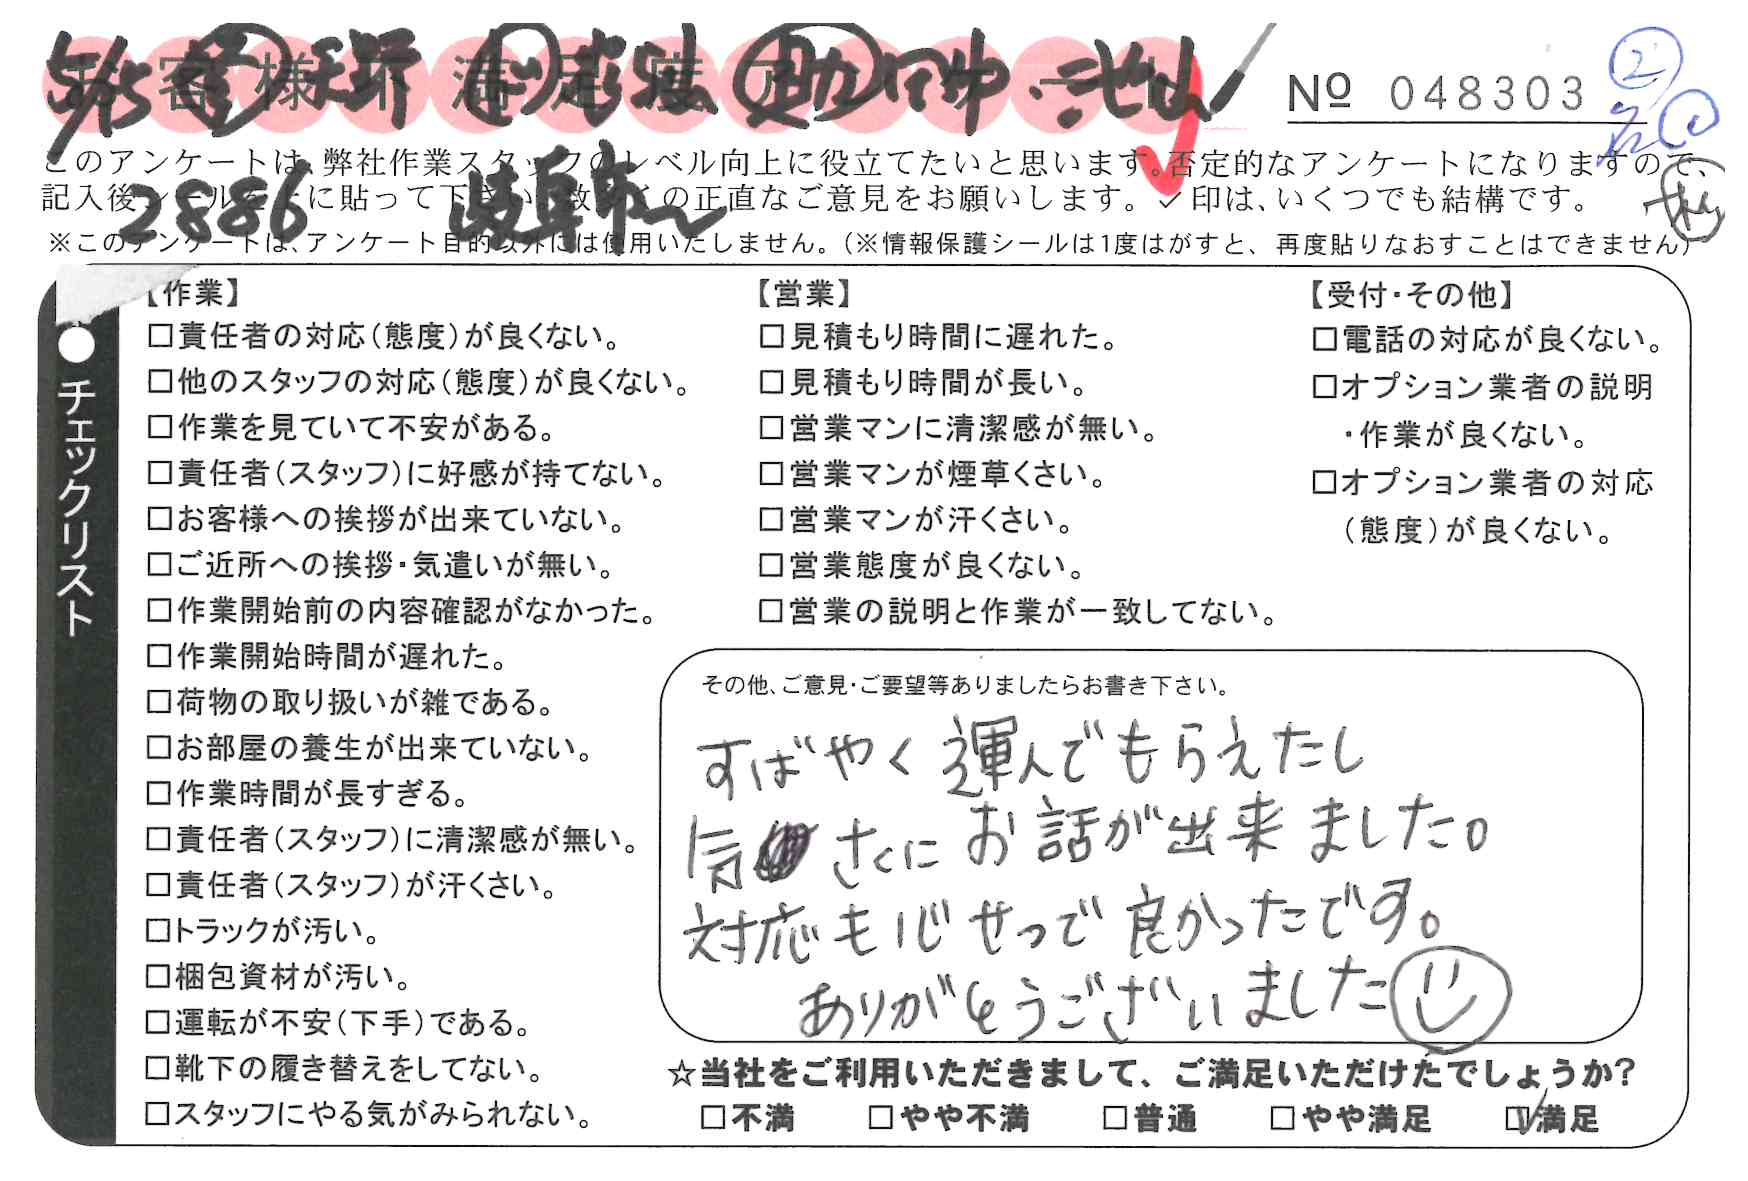 お客様不満足度アンケート
№ 048303
②
2886 岐阜市~
このアンケートは、弊社作業スタッフのレベル向上に役立てたいと思います。否定的なアンケートになりますので、
記入後シールを上に貼って下さい。数多くの正直なご意見をお願いします。✓印は、いくつでも結構です。
※このアンケートは、アンケート目的以外には使用いたしません。(※情報保護シールは1度はがすと、再度貼りなおすことはできません)
●チェックリスト
【作業】
□責任者の対応(態度)が良くない。
□他のスタッフの対応(態度)が良くない。
□作業を見ていて不安がある。
□責任者(スタッフ)に好感が持てない。
□お客様への挨拶が出来ていない。
□ご近所への挨拶・気遣いが無い。
□作業開始前の内容確認がなかった。
□作業開始時間が遅れた。
□荷物の取り扱いが雑である。
□お部屋の養生が出来ていない。
□作業時間が長すぎる。
□責任者(スタッフ)に清潔感が無い。
□責任者(スタッフ)が汗くさい。
□トラックが汚い。
□梱包資材が汚い。
□運転が不安(下手)である。
□靴下の履き替えをしてない。
□スタッフにやる気がみられない。
【営業】
□見積もり時間に遅れた。
□見積もり時間が長い。
□営業マンに清潔感が無い。
□営業マンが煙草くさい。
□営業マンが汗くさい。
□営業態度が良くない。
□営業の説明と作業が一致してない。
【受付・その他】
□電話の対応が良くない。
□オプション業者の説明
・作業が良くない。
□オプション業者の対応
(態度)が良くない。
その他、ご意見・ご要望等ありましたらお書き下さい。
すばやく運んでもらえたし
気さくにお話が出来ました。
対応も心せつで良かったです。
ありがとうございました
☆当社をご利用いただきまして、ご満足いただけたでしょうか?
□不満 □やや不満 □普通 □やや満足 ☑満足